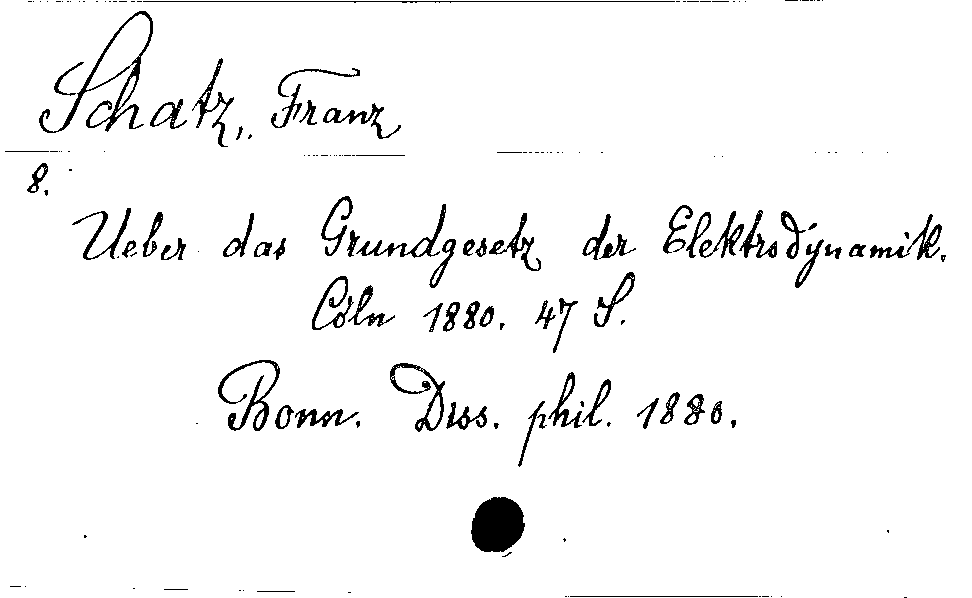 Schatz, Franz
8.
Ueber das Grundgesetz der Elektrodynamik.
Cöln 1880. 47 S.
Bonn. Diss. phil. 1880.